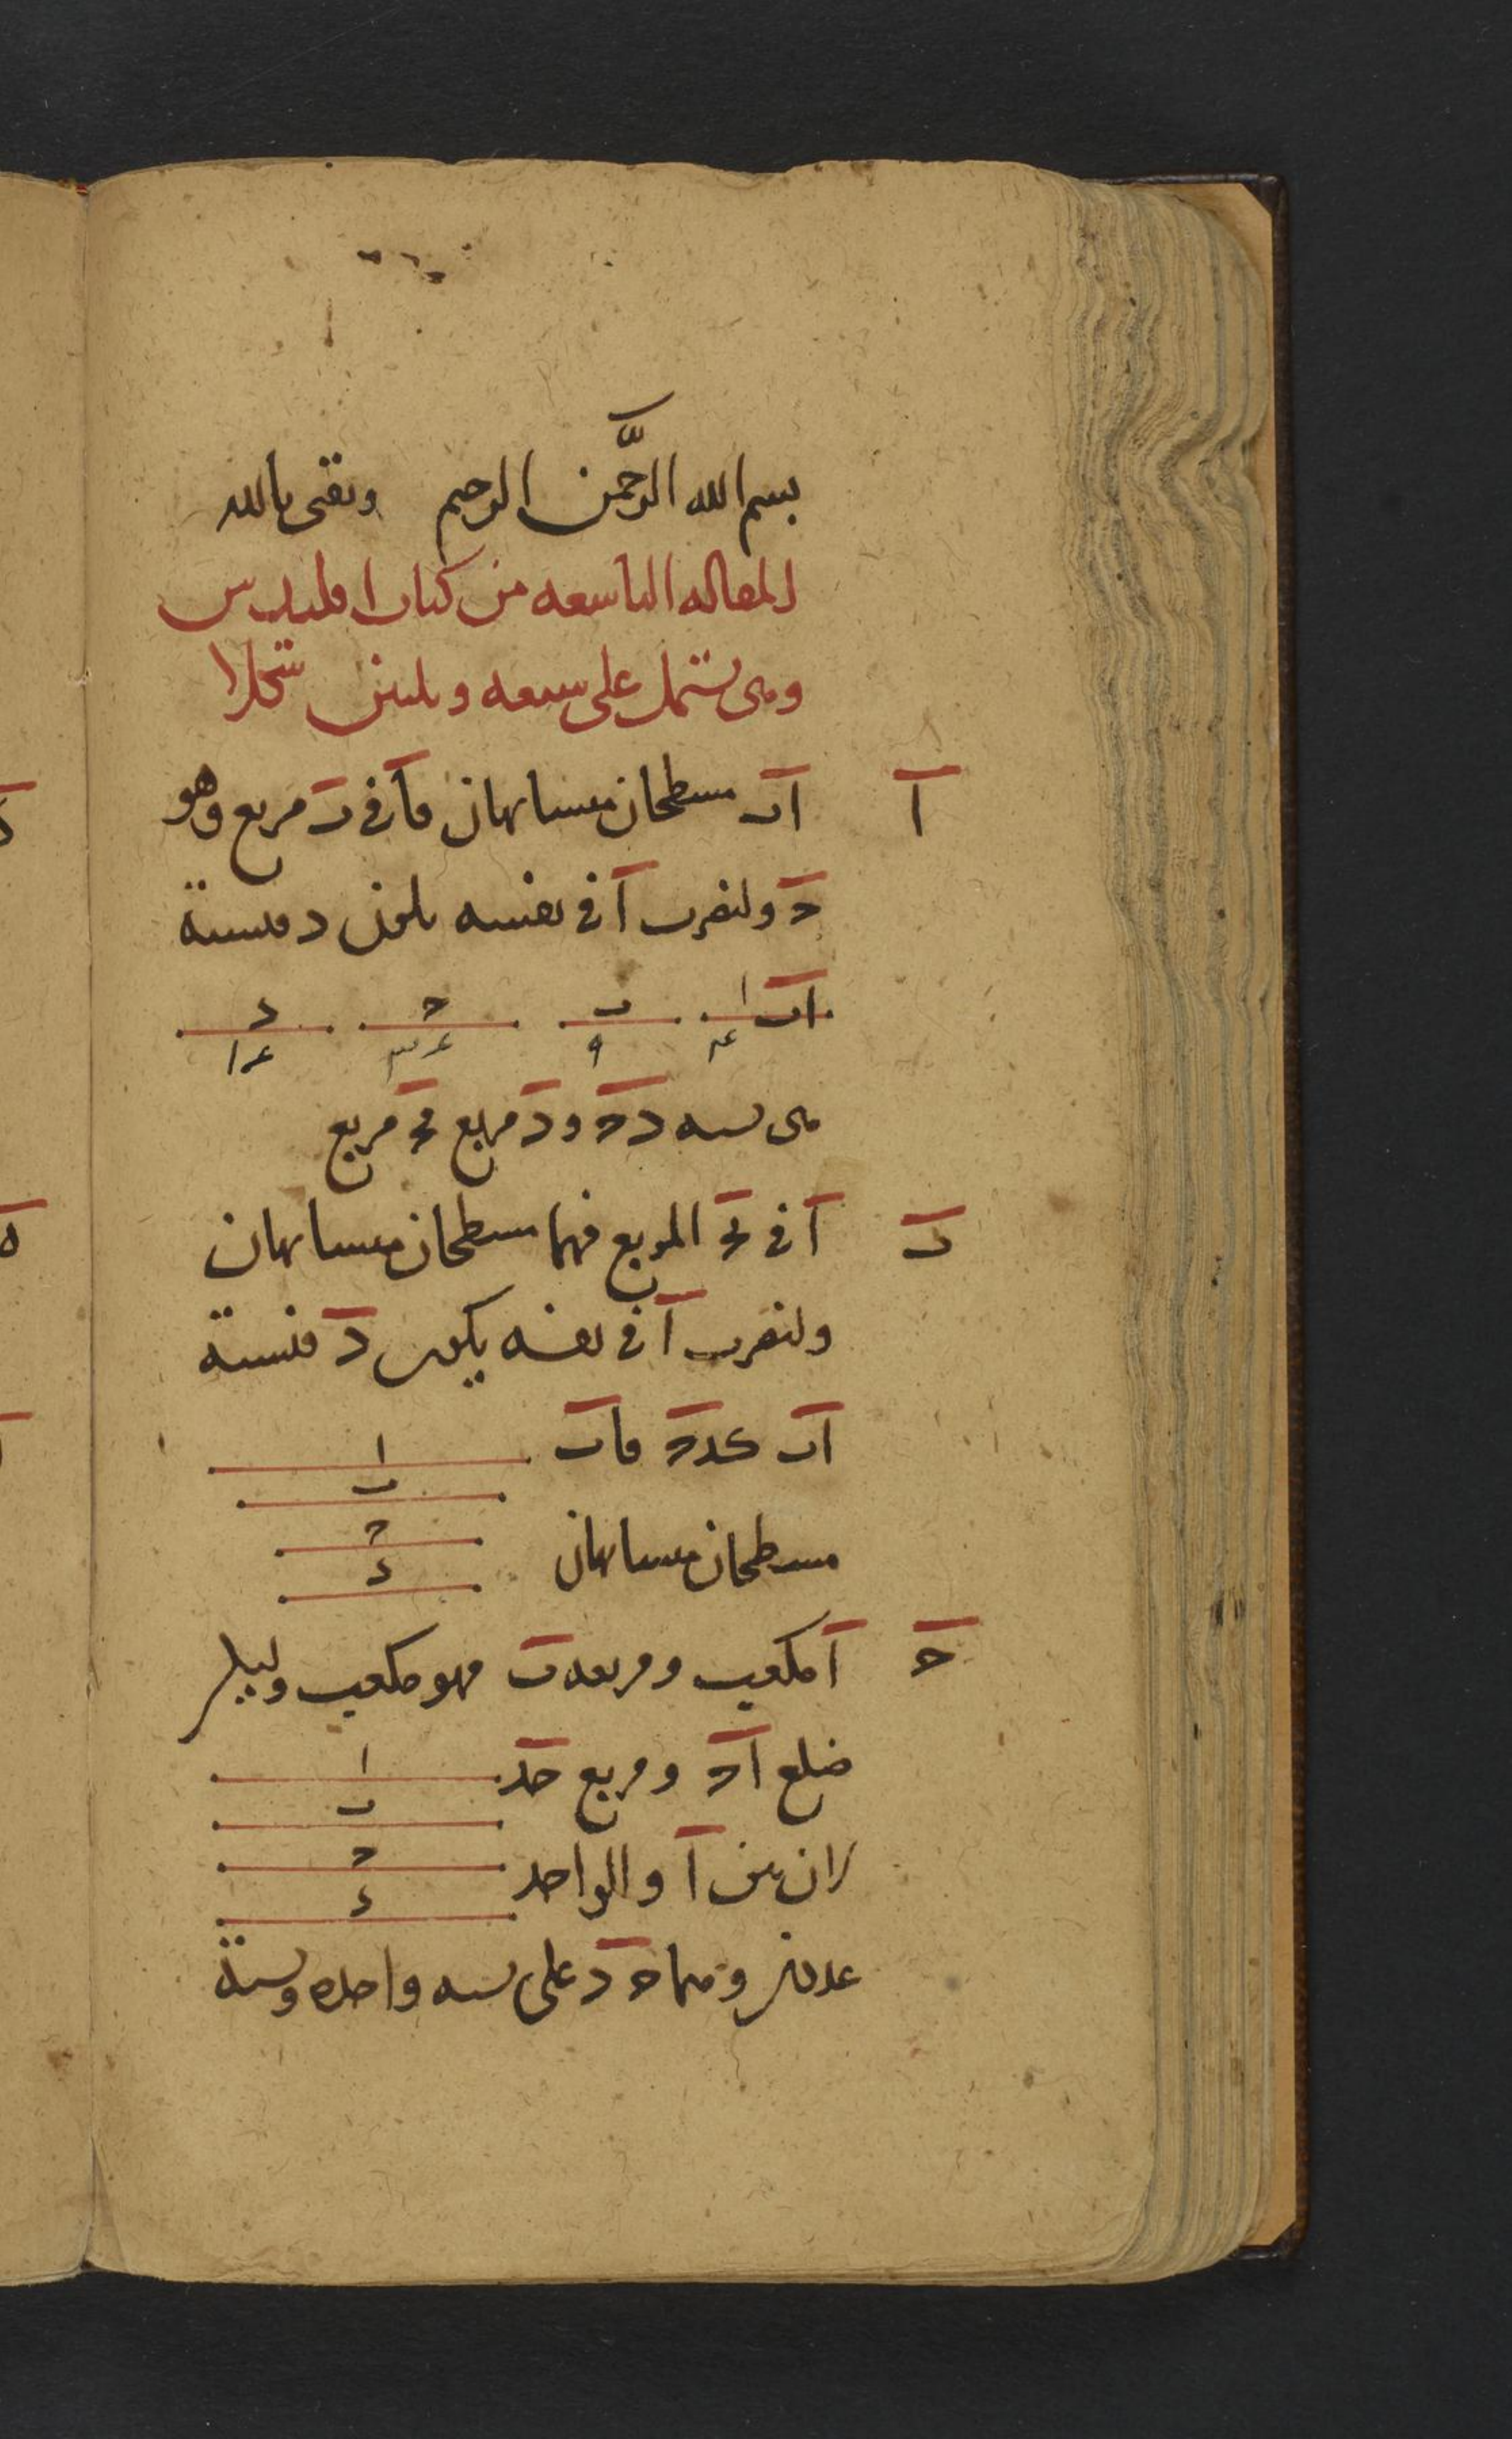 بسم الله الرحمن الرحيم وثقتى بالله
المقاله التاسعه من كتاب اقليدس
وهى تشتمل على سبعه وثلثين شكلا
ا اب مسطحان متشابهان فا فى ب مربع وهو
ح ولنضرب ا فى نفسه يكون د فنسبة
اب
ا ب ح د
٤ ٩ ٣٦ ١٦
هى نسبه د ح ود مربع فح مربع
ب ا فى ب ح المربع فهما مسطحان متشابهان
ولنضرب ا فى نفسه يكون د فنسبة
اب كدح فاب
ا
ب
ح
د
مسطحان متشابهان
ح ا مكعب ومربعه ب فهو مكعب وليكن
ضلع ا ح ومربع ح د
ا
ب
ح
د
لان بين ا والواحد
عددين وهما ح د على نسبه واحده ونسبة